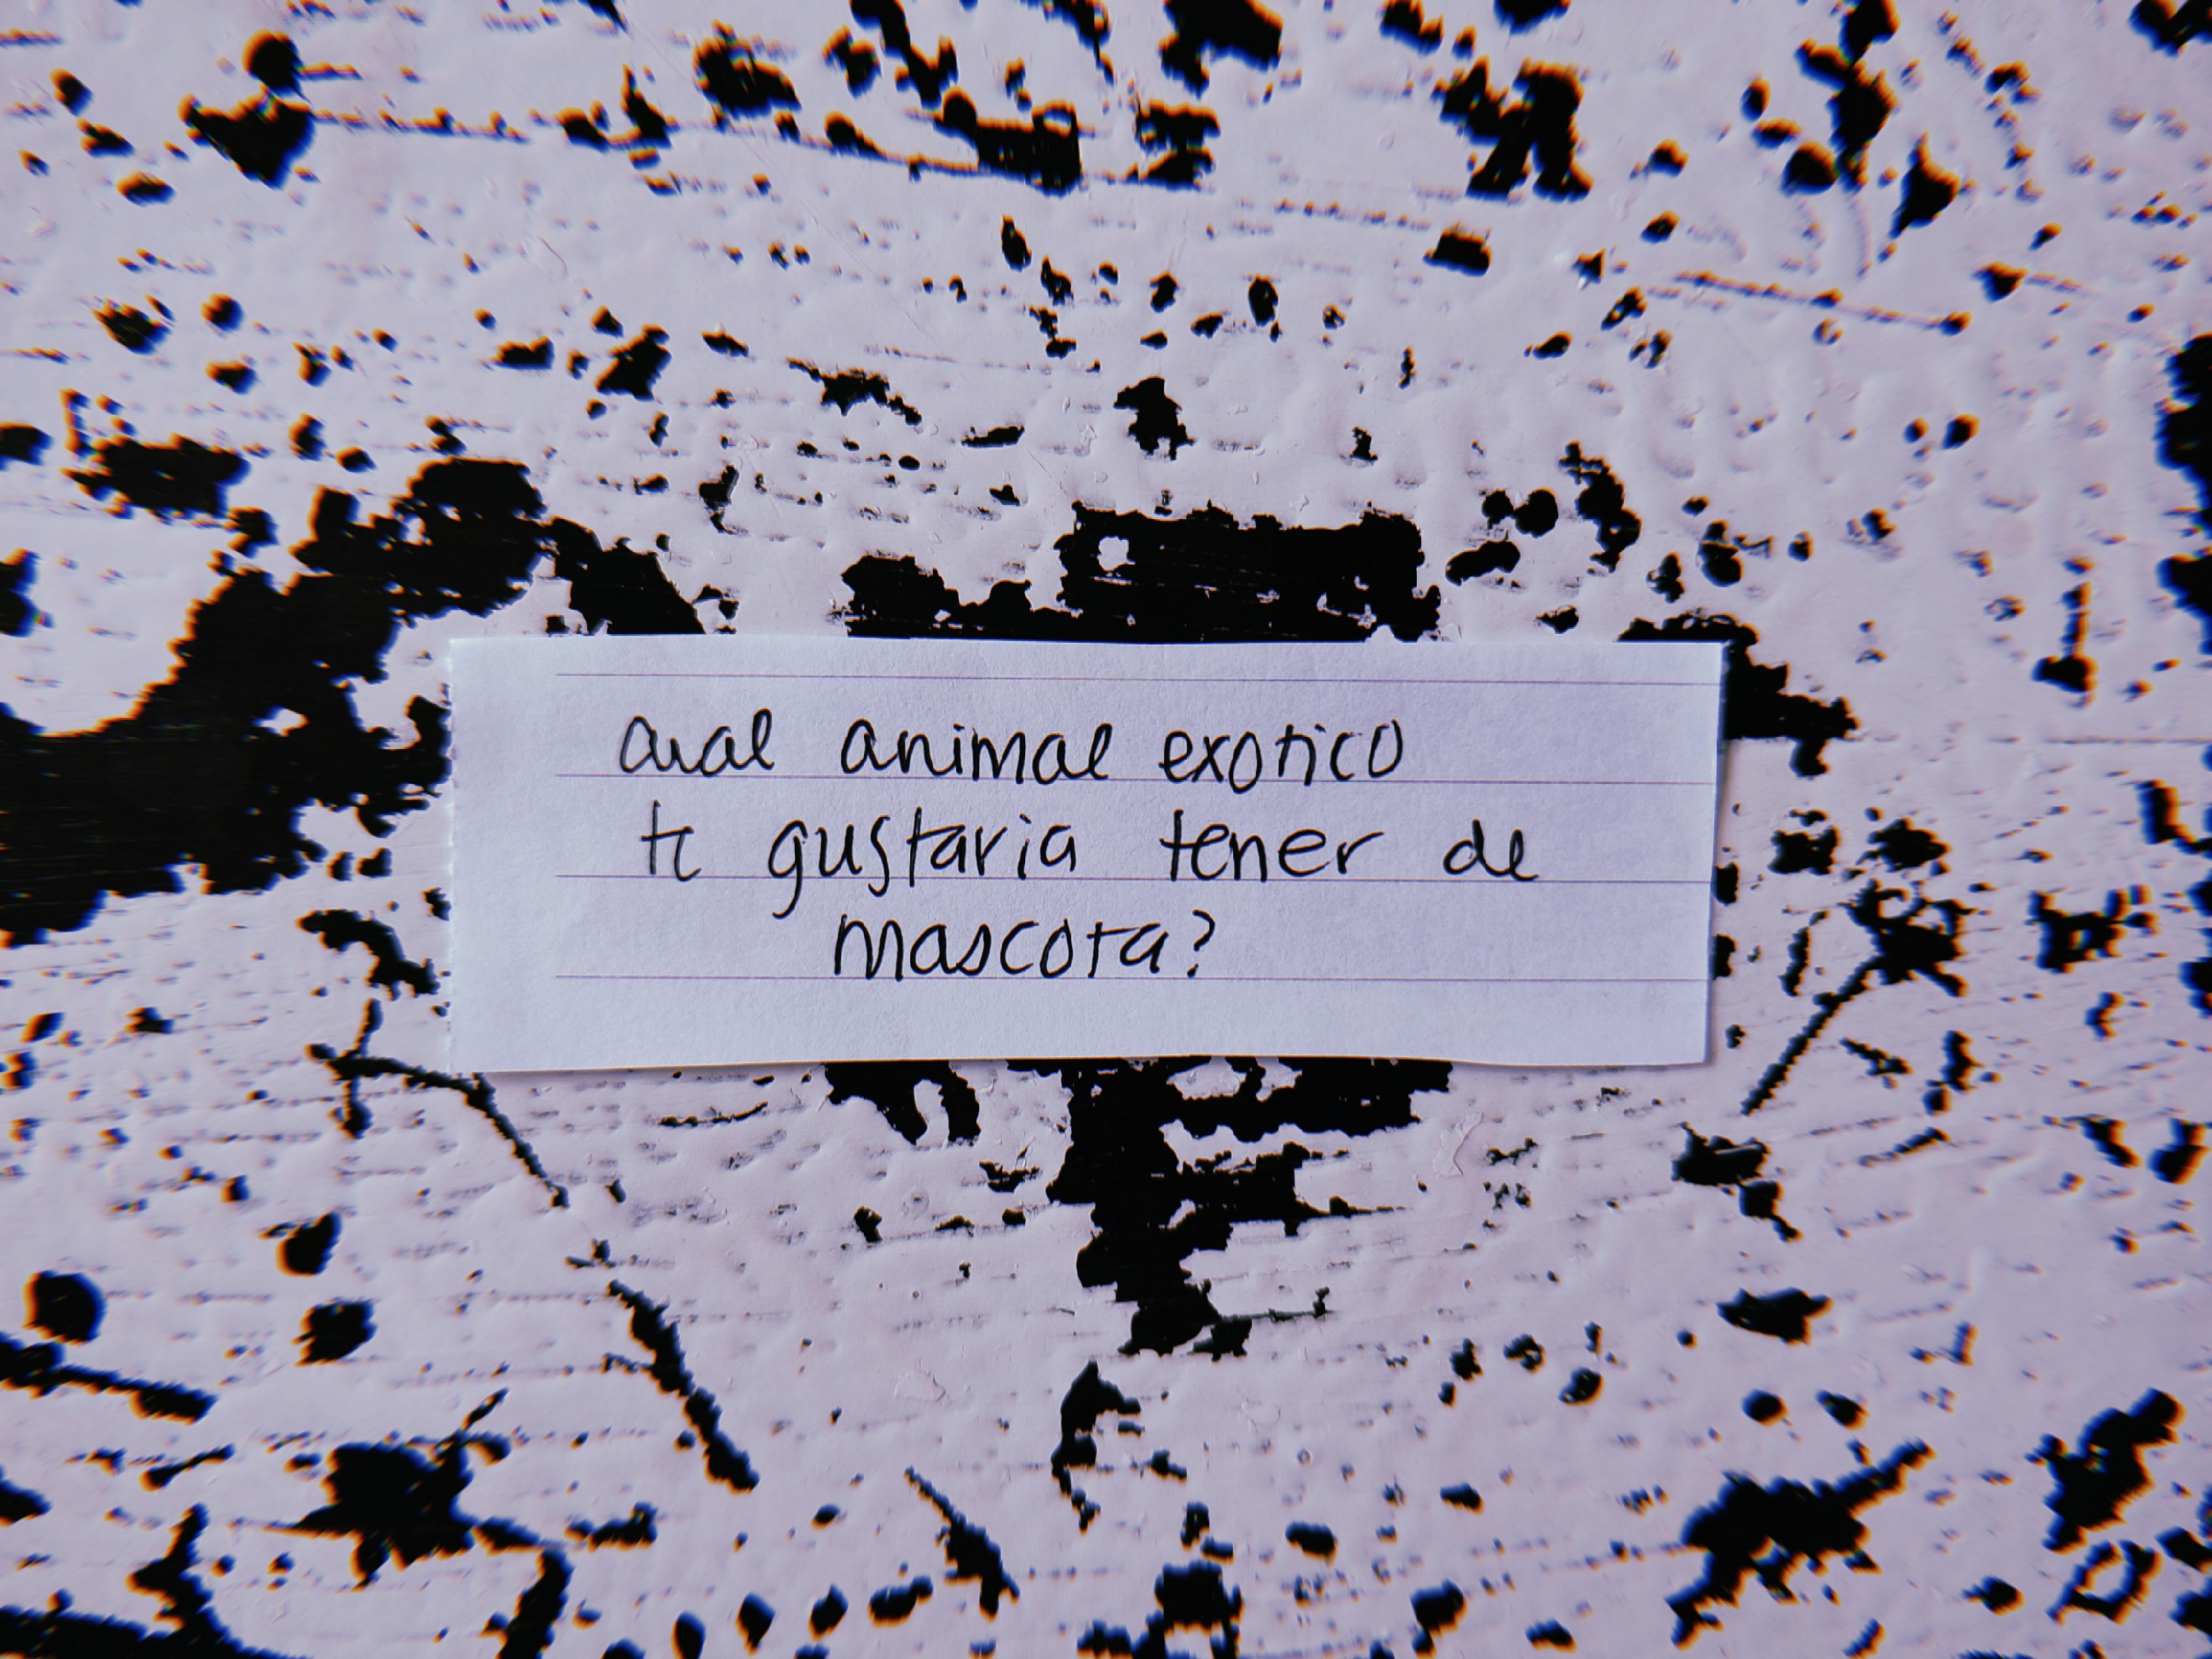 cual animal exotico
te gustaria tener de
mascota?